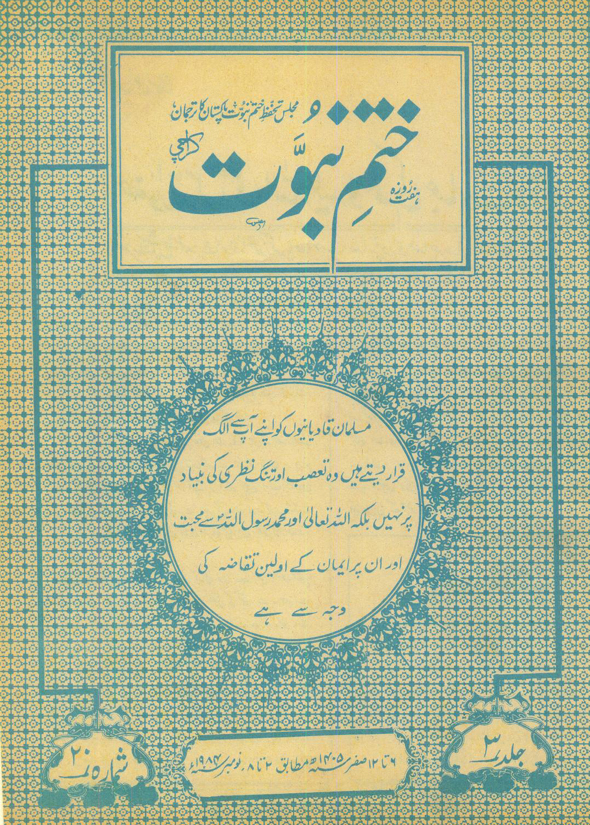 مجلس تحفظ ختم نبوت پاکستان کا ترجمان
ہفت روزہ
ختمِ نبوّت
کراچی
مسلمان قادیانیوں کو اپنے آپ سے الگ
قرار دیتے ہیں وہ تعصب اور تنگ نظری کی بنیاد
پر نہیں بلکہ اللہ تعالیٰ اور محمد رسول اللہؐ سے محبت
اور ان پر ایمان کے اولین تقاضہ کی
وجہ سے ہے
جلد ۳
۶ تا ۱۲ صفر ۱۴۰۵ھ مطابق ۲ تا ۸ نومبر ۱۹۸۴ء
شمارہ نمبر ۲۰